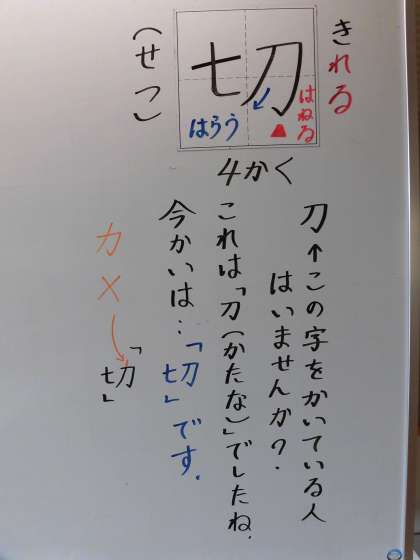 きれる
切
はねる
はらう
(せつ)
4かく
刀←この字をかいている人
はいませんか?.
これは「刀(かたな)」でしたね.
今かいは…「切」です.
カ×→「切」